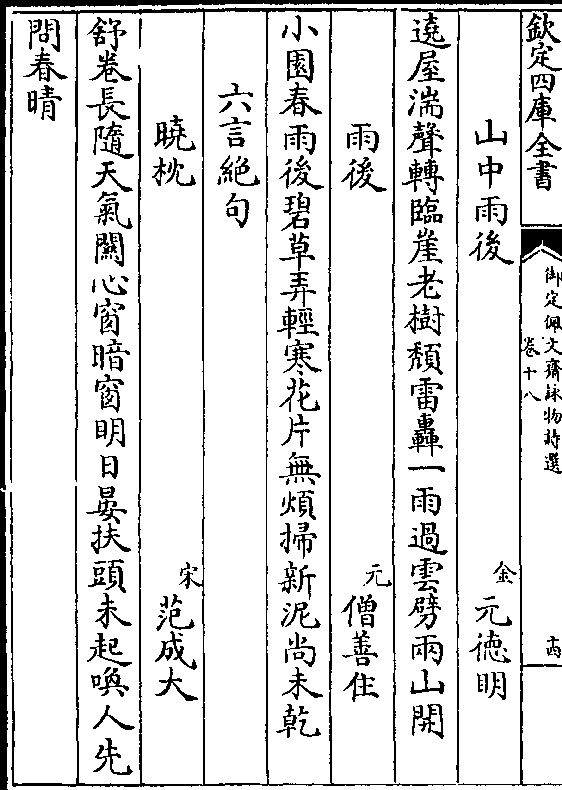 欽定四庫全書
御定佩文齋詠物詩選
卷十八
十四
山中雨後 金 元德明
遶屋湍聲轉臨崖老樹頹雷轟一雨過雲劈兩山開
雨後 元 僧善住
小園春雨後碧草弄輕寒花片無煩掃新泥尚未乾
六言絕句
曉枕 宋 范成大
舒卷長隨天氣關心窗暗窗明日晏扶頭未起喚人先
問春晴